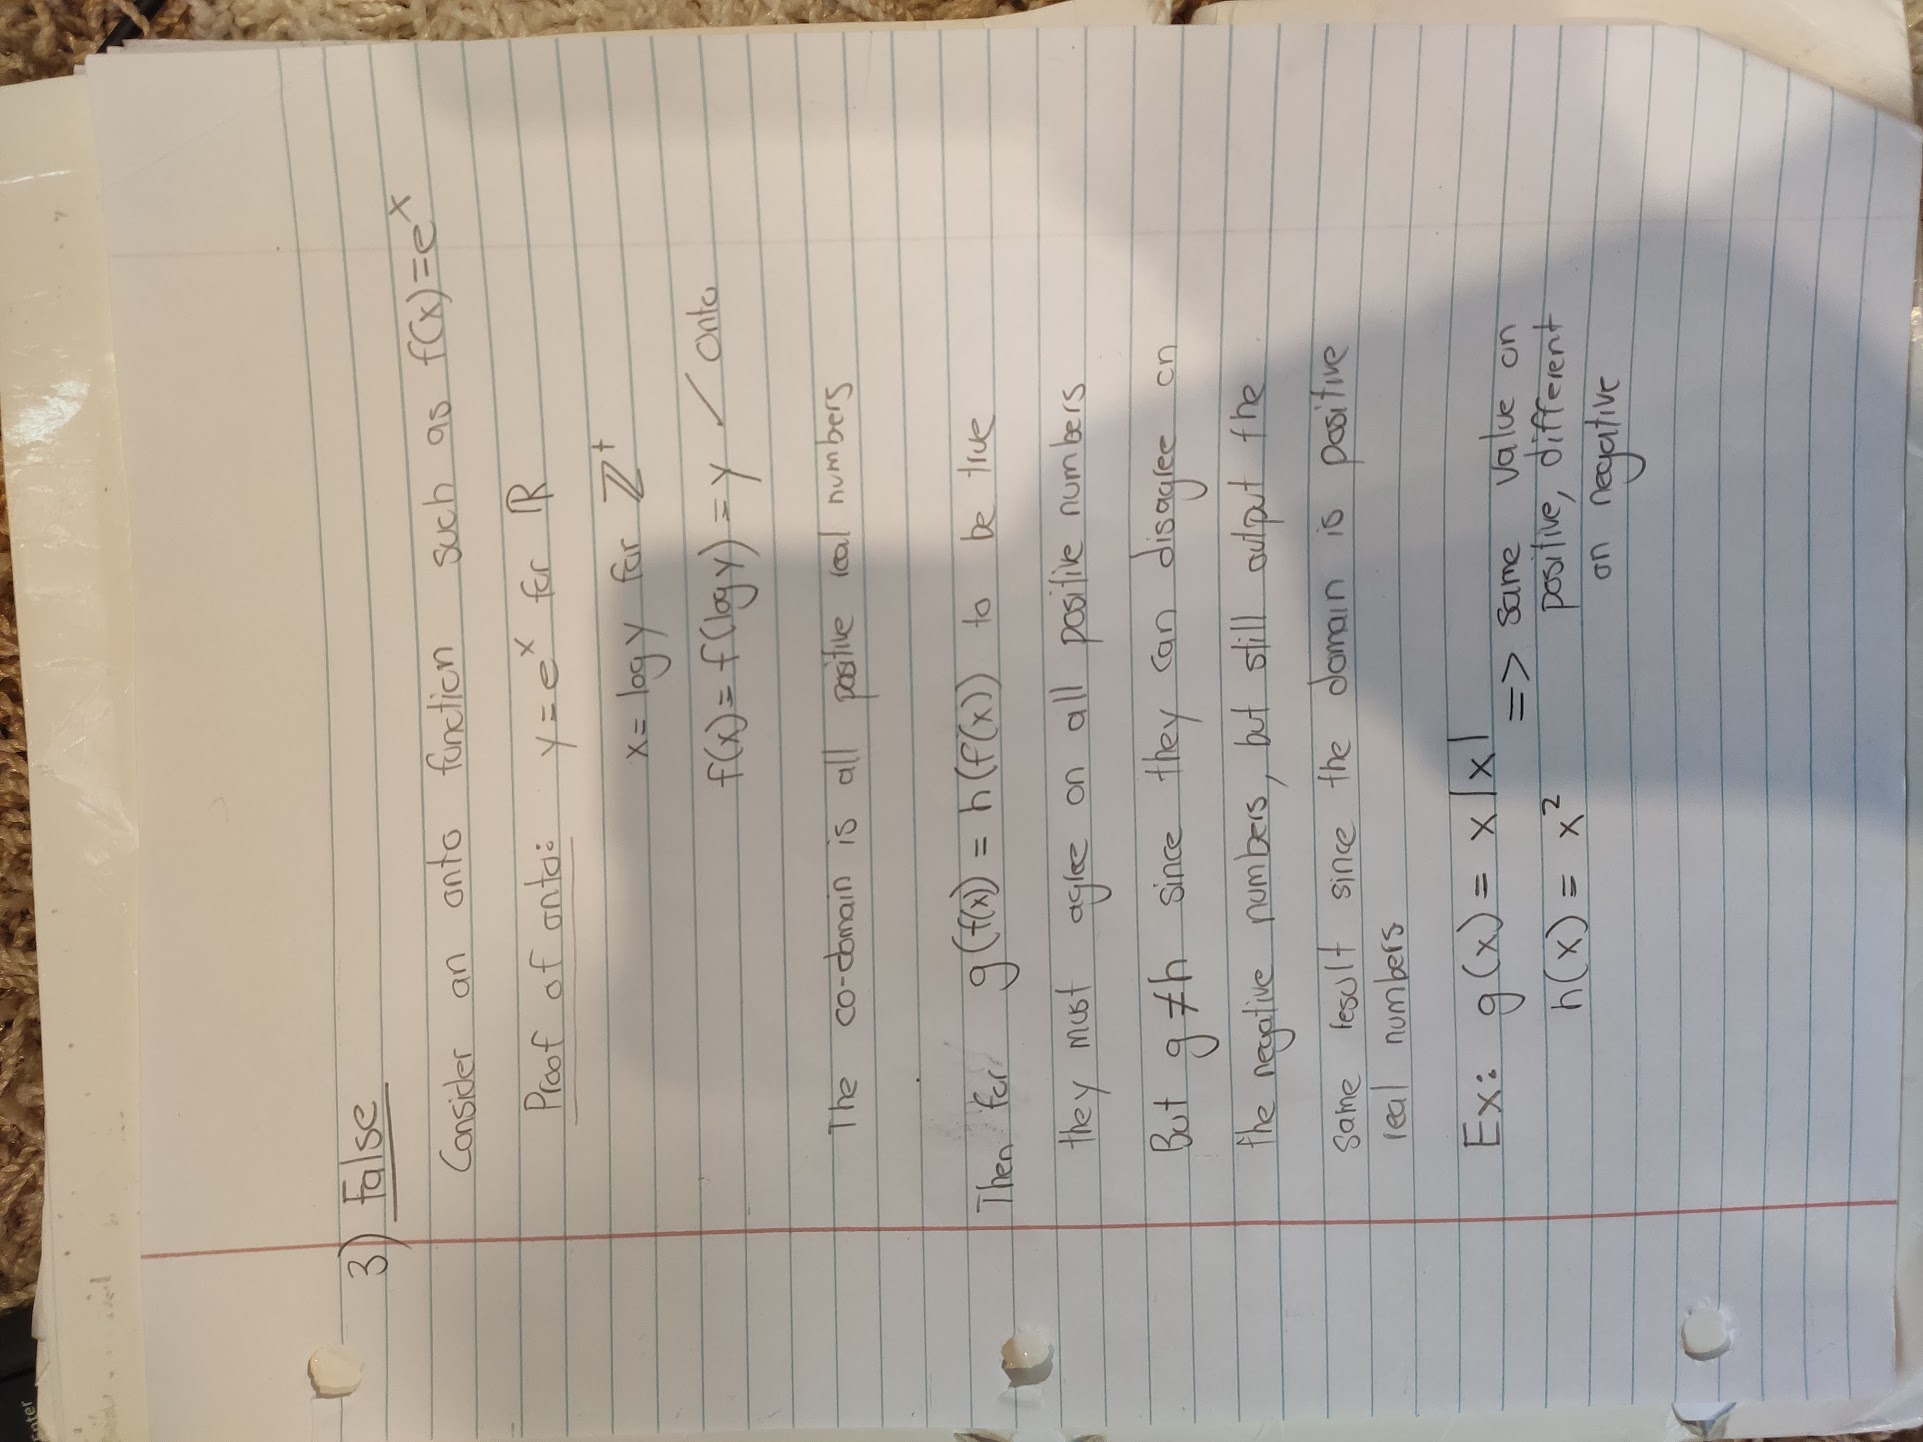 Enter
3) False
Consider an onto function such as f(x)=e^x
Proof of onto: y=e^x for ℝ
x= log y for ℤ^+
f(x)= f(log y) = y ✓ onto
The co-domain is all positive real numbers
Then for g(f(x)) = h(f(x)) to be true
they must agree on all positive numbers
But g≠h since they can disagree on
the negative numbers, but still output the
same result since the domain is positive
real numbers
Ex: g(x) = x|x|
=> same value on
h(x) = x²
positive, different
on negative